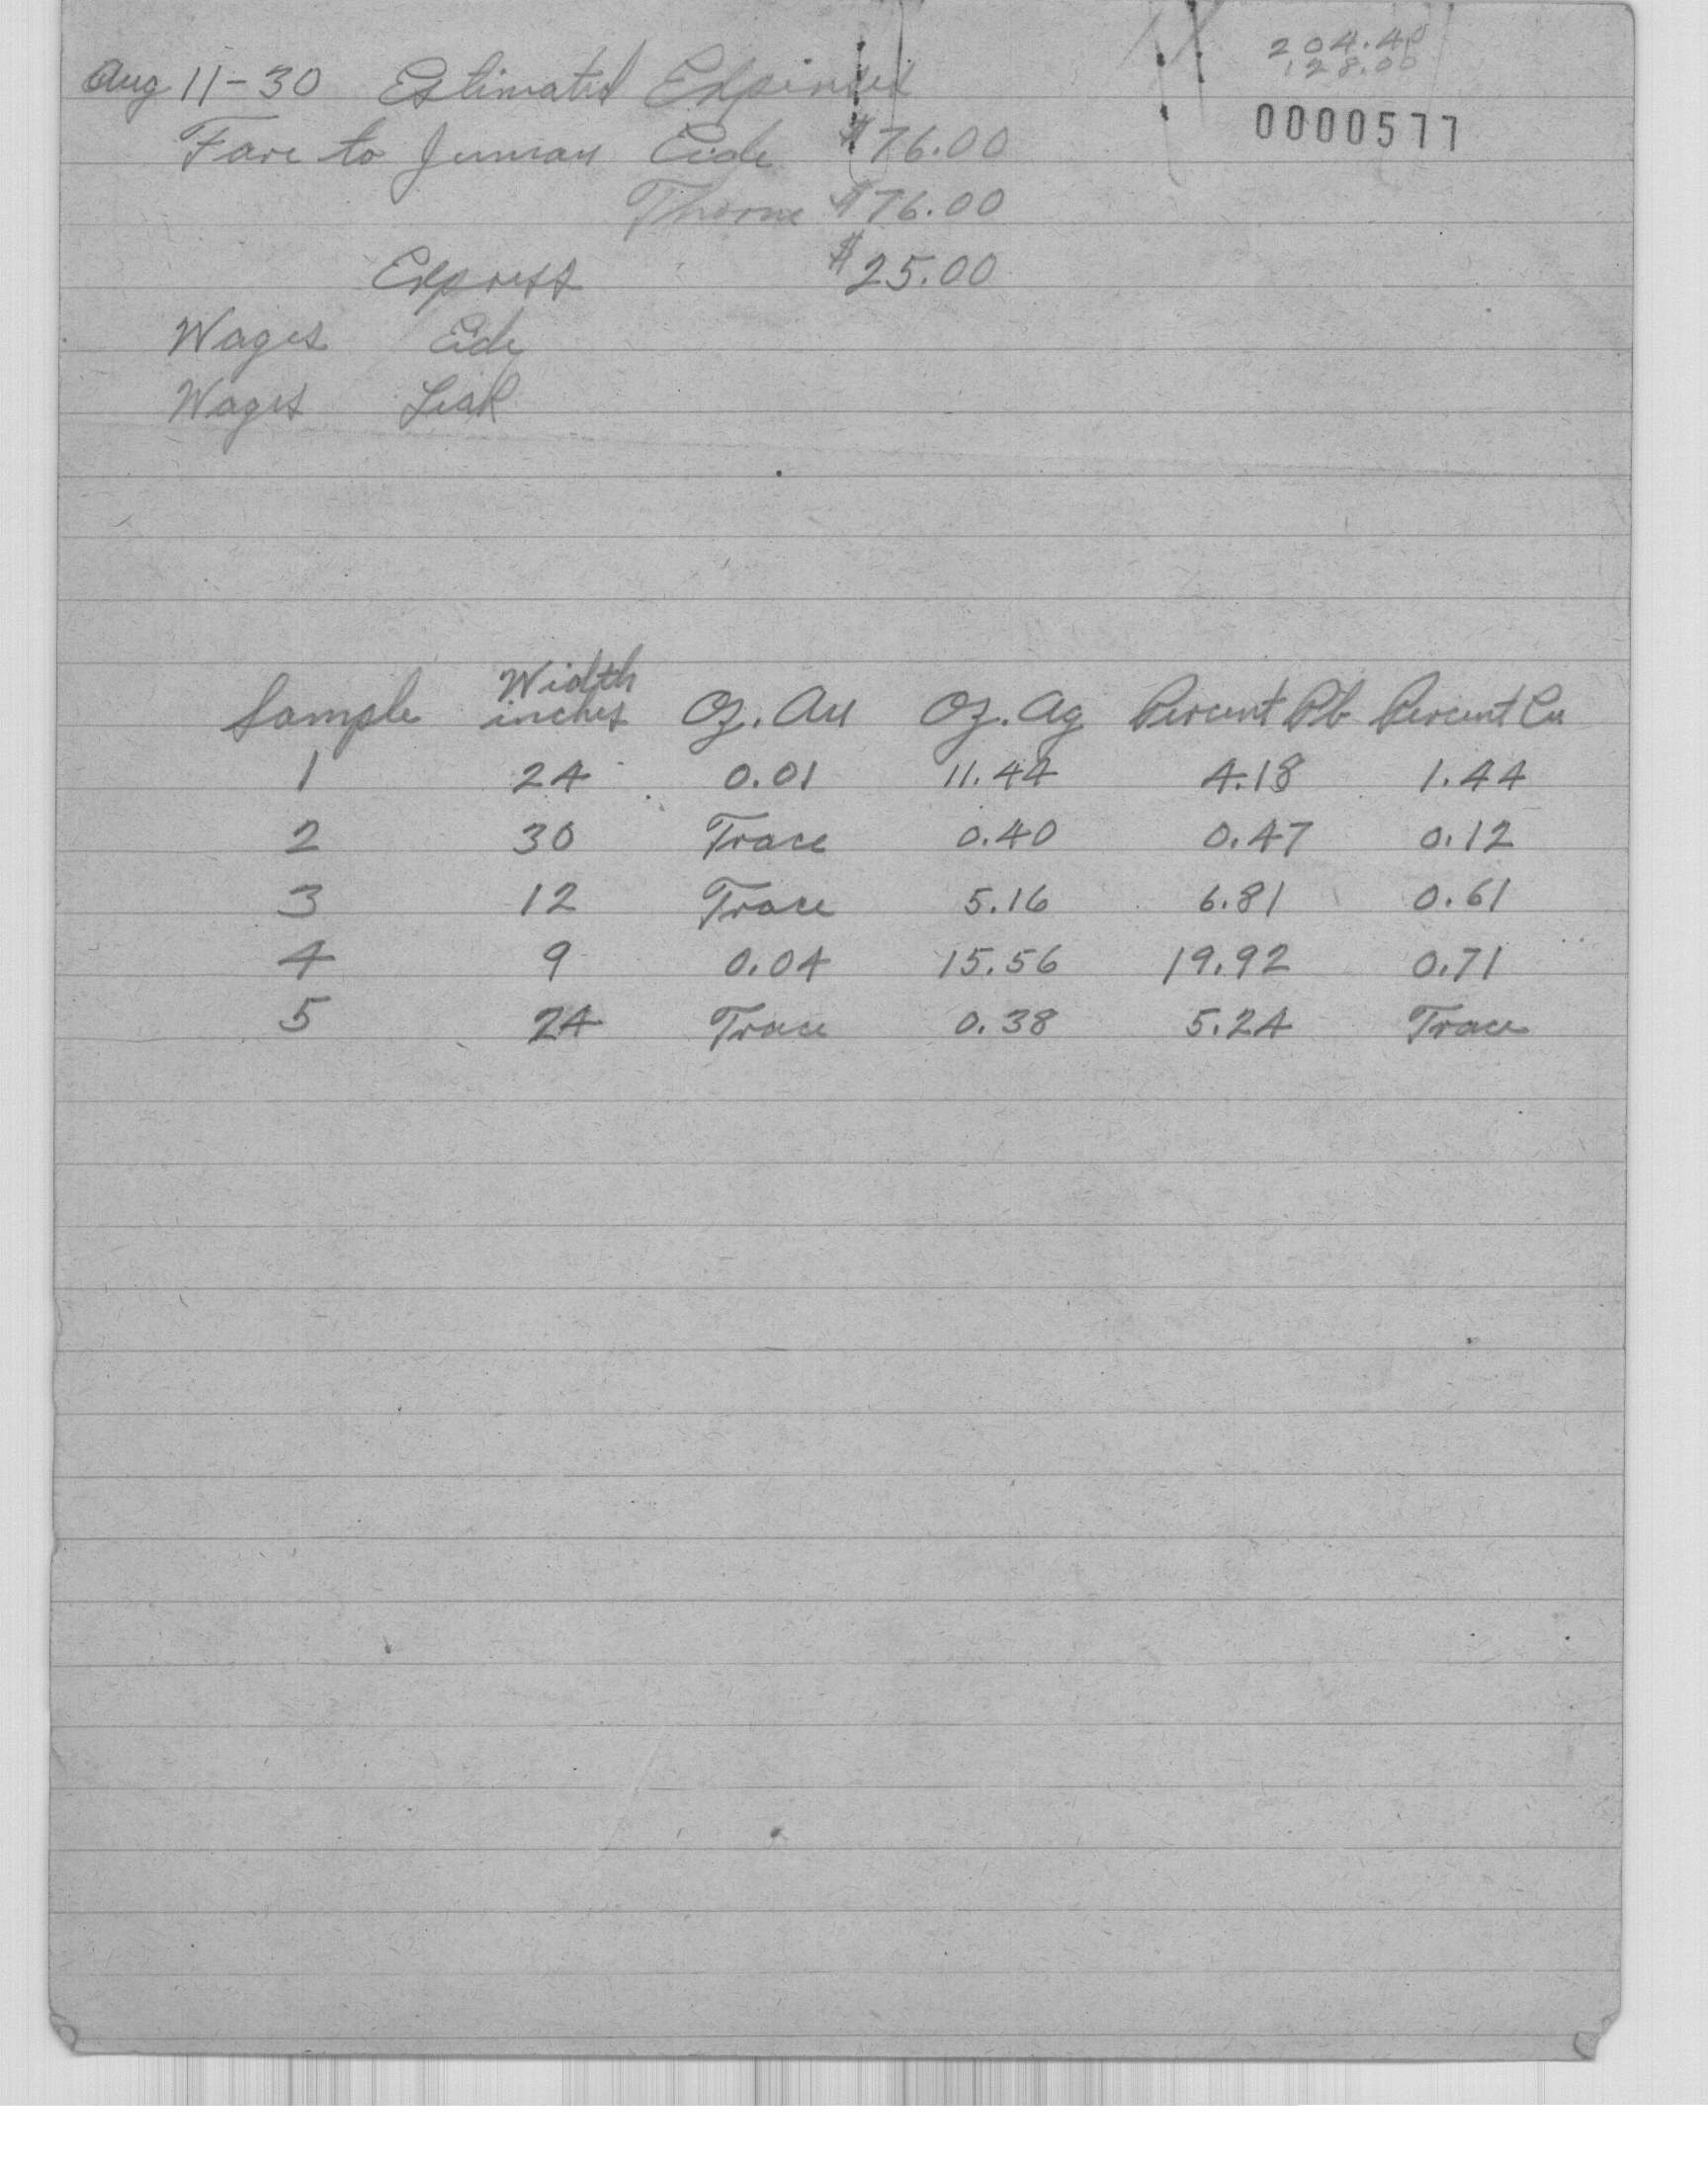 204.40
128.00
0000577
Aug 11-30 Estimated Expenses
Fare to Juneau Eide $76.00
Thorne $76.00
Express $25.00
Wages Eide
Wages Lisk
Sample Width inches Oz. Au Oz. Ag Percent Pb Percent Cu
1 24 0.01 11.44 4.18 1.44
2 30 Trace 0.40 0.47 0.12
3 12 Trace 5.16 6.81 0.61
4 9 0.04 15.56 19.92 0.71
5 24 Trace 0.38 5.24 Trace